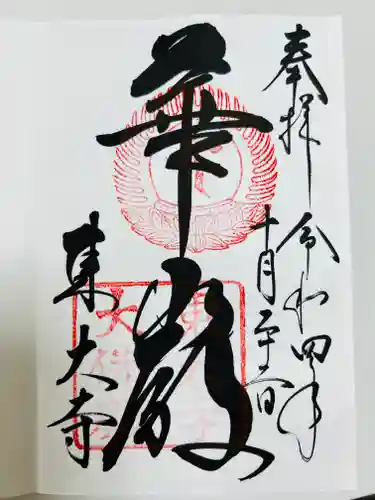 奉拝
令和四年
十月二十二日
華厳
東大寺